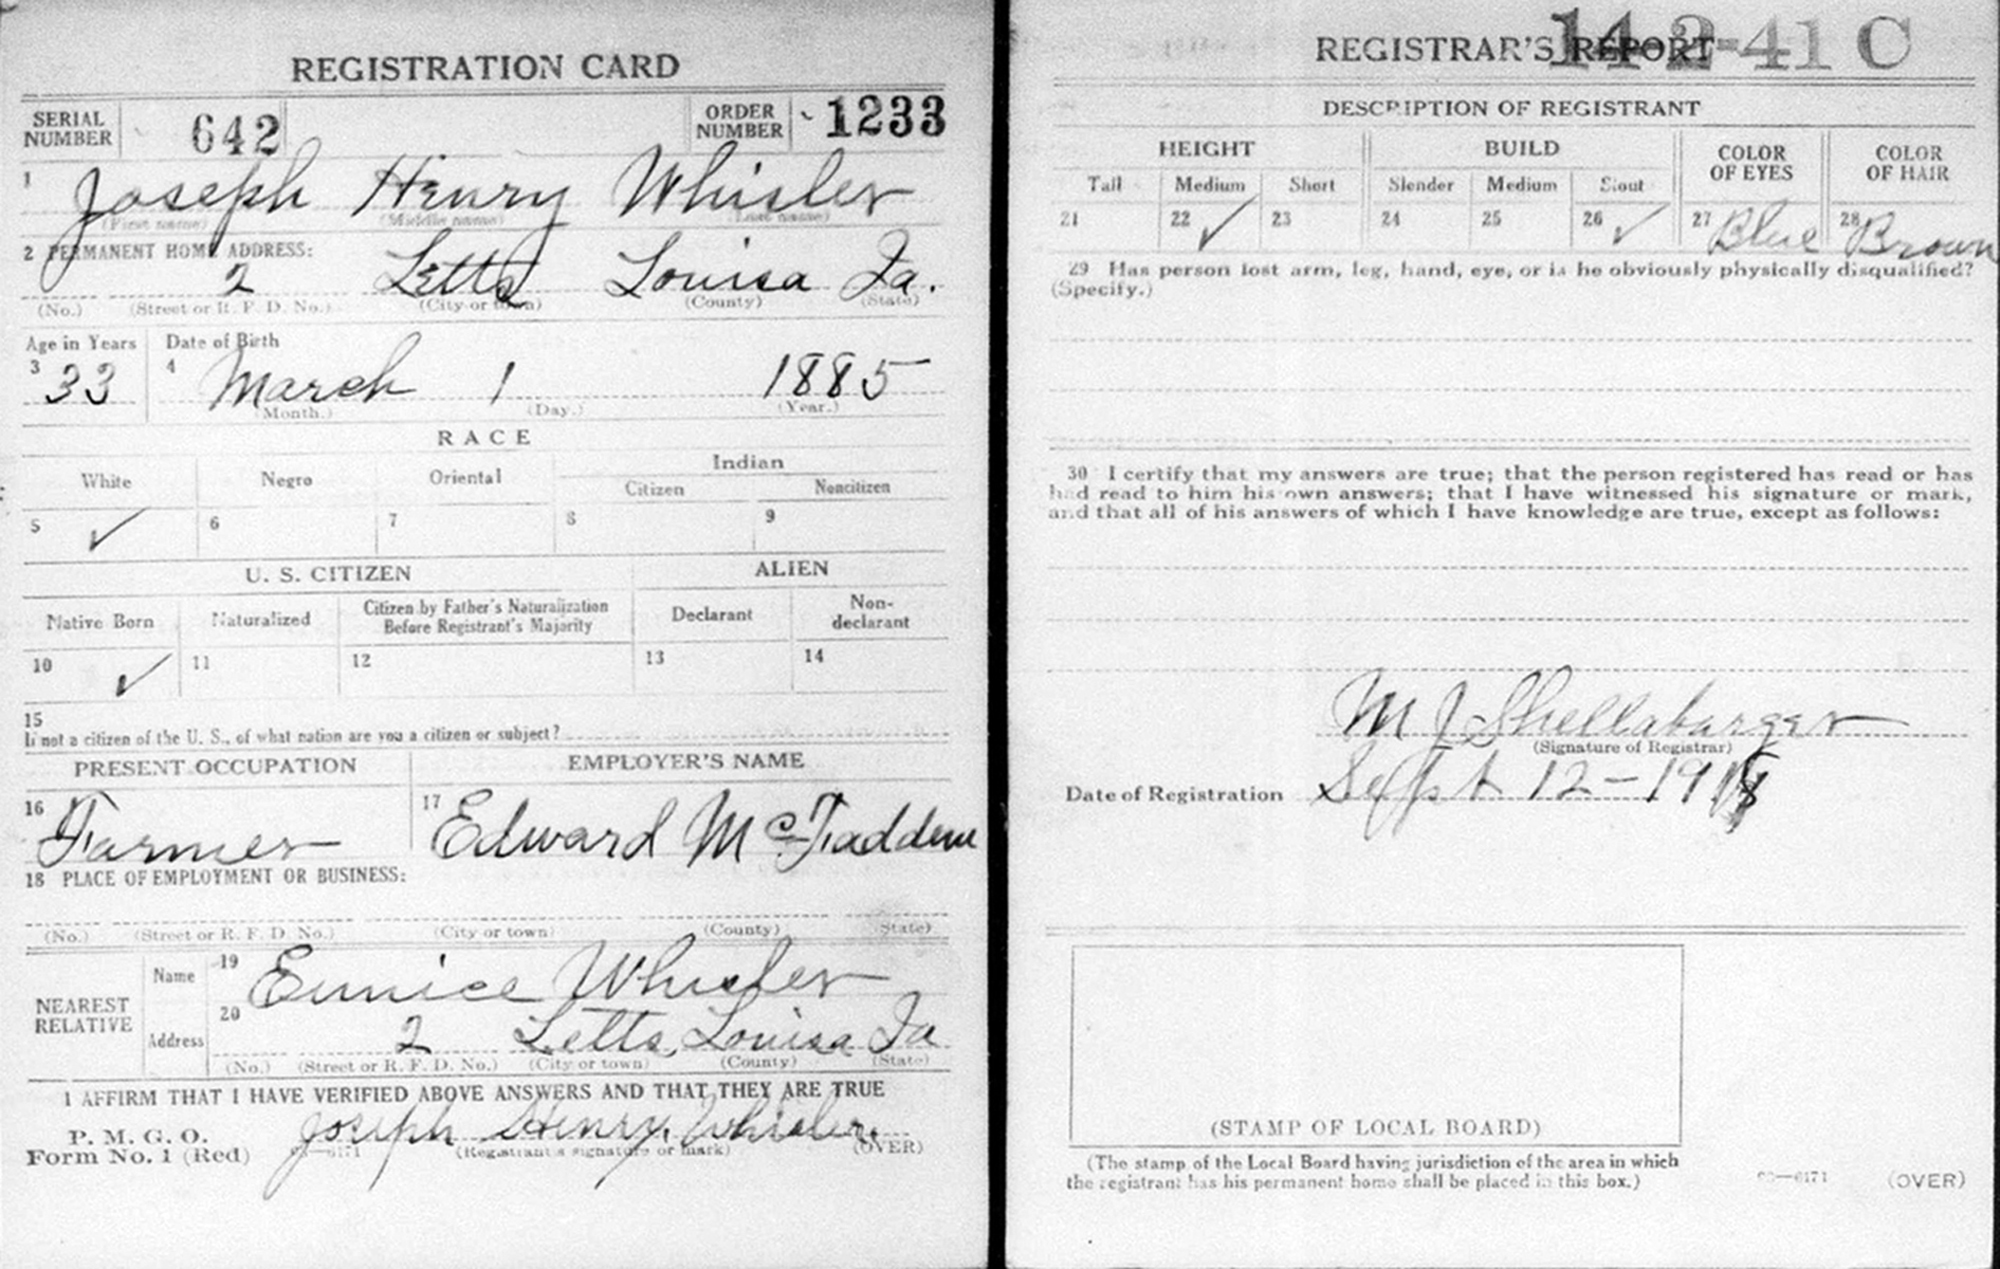 REGISTRATION CARD
SERIAL NUMBER 642 ORDER NUMBER 1233
1 Joseph Henry Whisler
(First name) (Middle name) (Last name)
2 PERMANENT HOME ADDRESS:
2 Letts Louisa Ia.
(No.) (Street or R. F. D. No.) (City or town) (County) (State)
Age in Years Date of Birth
3 33 4 March 1 1885
(Month.) (Day.) (Year.)
RACE
White Negro Oriental Indian
Citizen Noncitizen
5 ✓ 6 7 8 9
U. S. CITIZEN ALIEN
Native Born Naturalized Citizen by Father's Naturalization Before Registrant's Majority Declarant Non-declarant
10 ✓ 11 12 13 14
15
If not a citizen of the U. S., of what nation are you a citizen or subject?
PRESENT OCCUPATION EMPLOYER'S NAME
16 Farmer 17 Edward McFadden
18 PLACE OF EMPLOYMENT OR BUSINESS:
(No.) (Street or R. F. D. No.) (City or town) (County) (State)
NEAREST RELATIVE
Name 19 Eunice Whisler
Address 20 2 Letts, Louisa Ia
(No.) (Street or R. F. D. No.) (City or town) (County) (State)
I AFFIRM THAT I HAVE VERIFIED ABOVE ANSWERS AND THAT THEY ARE TRUE
P. M. G. O.
Form No. 1 (Red) Joseph Henry Whisler.
(Registrant's signature or mark) (OVER)
REGISTRAR'S REPORT 14-2-41 C
DESCRIPTION OF REGISTRANT
HEIGHT BUILD COLOR OF EYES COLOR OF HAIR
Tall Medium Short Slender Medium Stout
21 22 ✓ 23 24 25 26 ✓ 27 Blue 28 Brown
29 Has person lost arm, leg, hand, eye, or is he obviously physically disqualified?
(Specify.)
30 I certify that my answers are true; that the person registered has read or has
had read to him his own answers; that I have witnessed his signature or mark,
and that all of his answers of which I have knowledge are true, except as follows:
M J Shellabarger
(Signature of Registrar)
Date of Registration Sept 12-1918
(STAMP OF LOCAL BOARD)
(The stamp of the Local Board having jurisdiction of the area in which
the registrant has his permanent home shall be placed in this box.)
(OVER)